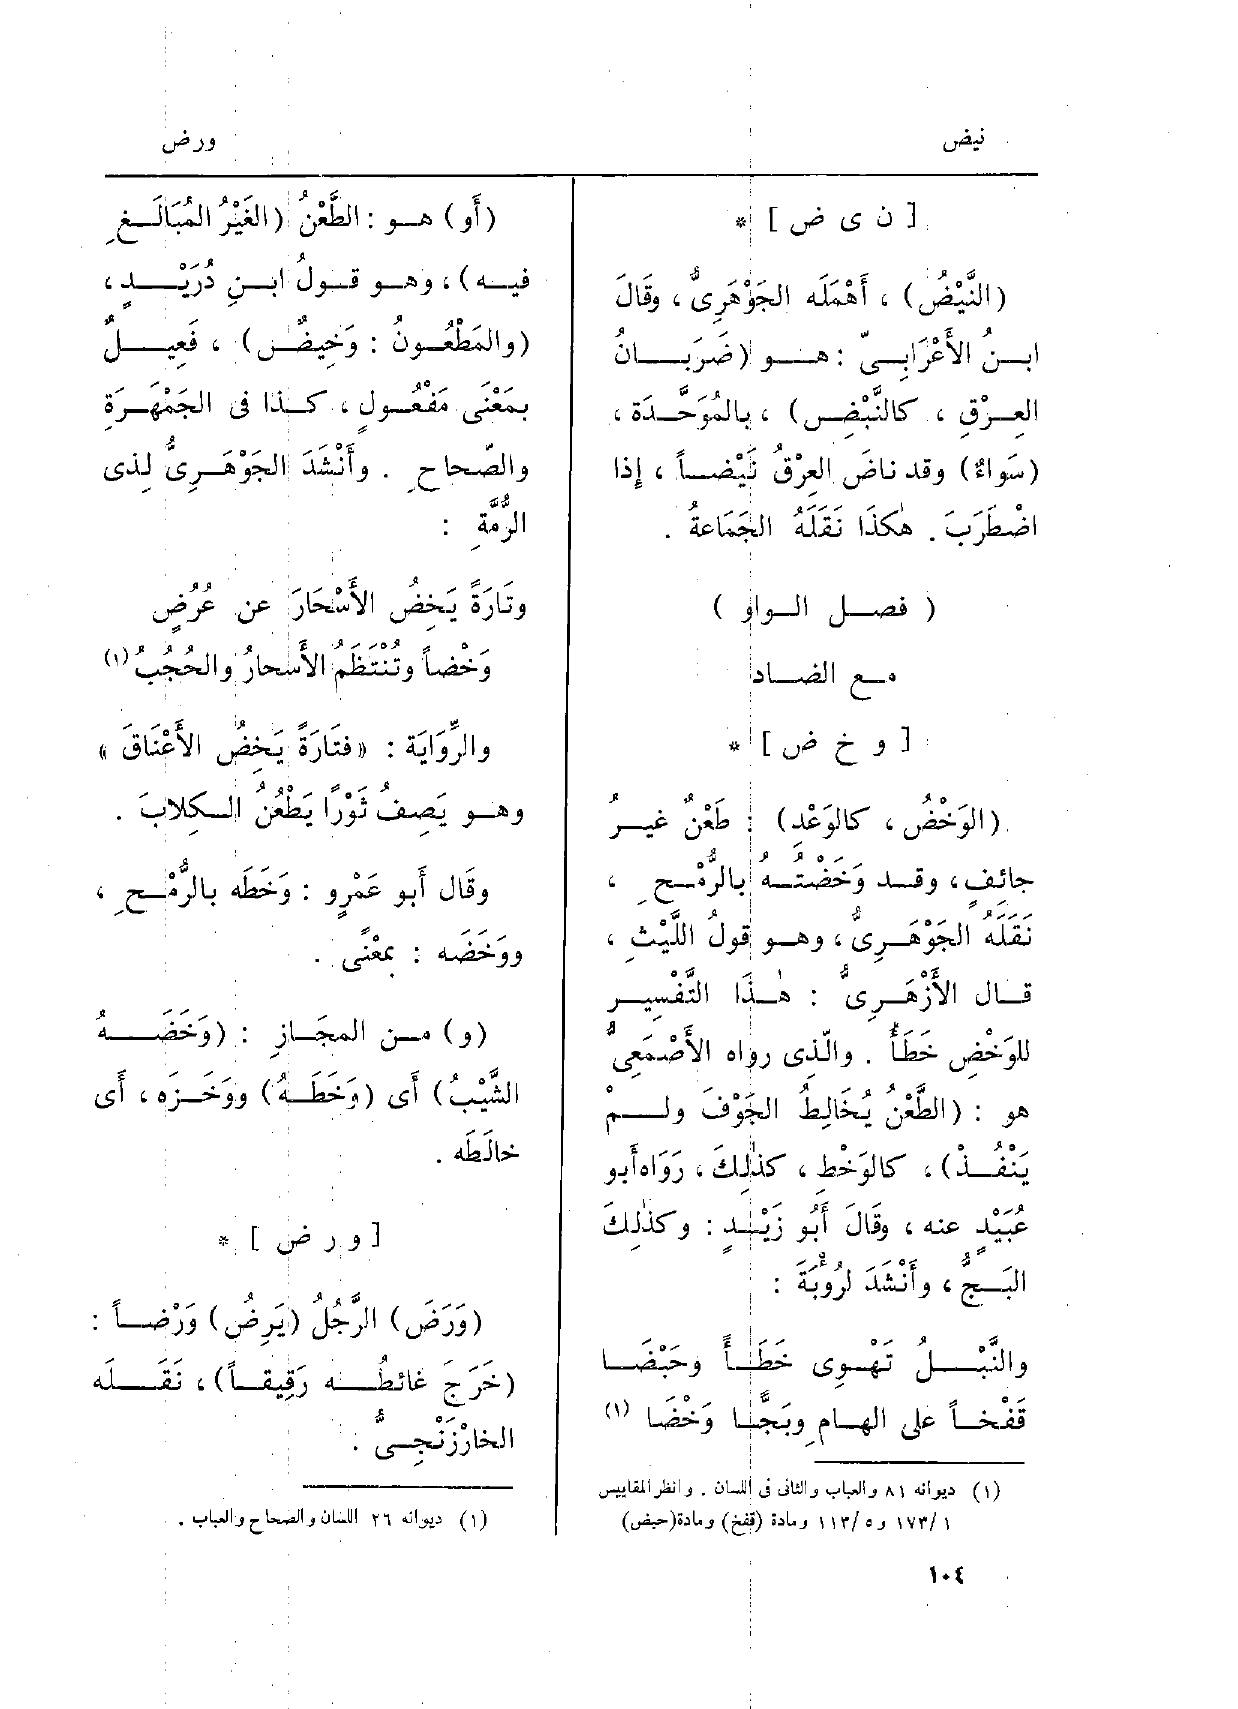 نيض
ورض
[ ن ى ض ] *
(النَّيْضُ) ، أَهْمَلَه الجَوْهَرِىُّ ، وقَالَ
ابنُ الأَعْرَابِىّ : هو (ضَرَبَانُ
العِرْقِ ، كالنَّبْضِ) ، بالمُوَحَّدَة ،
(سَواءٌ) وقد ناضَ العِرْقُ نَيْضاً ، إِذا
اضْطَرَبَ . هٰكَذا نَقَلَهُ الجَمَاعةُ .
( فصل الواو )
مع الضاد
[ و خ ض ] *
(الوَخْضُ ، كالوَعْدِ) : طَعْنٌ غيرُ
جائفٍ ، وقد وَخَضْتُهُ بالرُّمْحِ ،
نَقَلَهُ الجَوْهَرِىُّ ، وهو قولُ اللَّيْثِ ،
قال الأَزْهَرِىُّ : هٰذا التَّفْسِير
للوَخْضِ خَطَأٌ . والّذى رواه الأَصْمَعِىُّ
هو : (الطَّعْنُ يُخَالِطُ الجَوْفَ ولمْ
يَنْفُذْ) ، كالوَخْطِ ، كذٰلِكَ ، رَوَاه أَبو
عُبَيْدٍ عنه ، وقَالَ أَبُو زَيْدٍ : وكذٰلِكَ
البَجُّ ، وأَنْشَدَ لرُؤْبَةَ :
والنَّبْلُ تَهْوِى خَطَأً وحَبْضَا
قَفْخاً على الهَامِ وبَجًّا وَخْضَا (١)
(١) ديوانه ٨١ والعباب والثانى فى اللسان . وانظر المقاييس
١ /١٧٣ و ٥ /١١٣ ومادة (قفخ) ومادة (حبض)
(أَو) هو : الطَّعْنُ (الغَيْرُ المُبَالَغِ
فيه) ، وهو قولُ ابنِ دُرَيْدٍ ،
(والمَطْعُونُ : وَخِيضٌ) ، فَعِيلٌ
بمَعْنَى مَفْعُولٍ ، كذا فى الجَمْهَرَةِ
والصّحاحِ . وأَنْشَدَ الجَوْهَرِىُّ لذى
الرُّمَّةِ :
وتَارَةً يَخِضُ الأَسْحَارَ عن عُرُضٍ
وَخْضاً وتُنْتَظَمُ الأَسحارُ والحُجُبُ (١)
والرِّوَايَة : «فتَارَةً يَخِضُ الأَعْنَاقَ »
وهو يَصِفُ ثَوْرًا يَطْعُنُ الكِلابَ .
وقَال أَبو عَمْرٍو : وَخَطَه بالرُّمْحِ ،
ووَخَضَه : بمعْنًى .
(و) من المجَازِ : (وَخَضَهُ
الشَّيْبُ) أَى (وَخَطَهُ) ووَخَزَه ، أَى
خالَطَه .
[ و ر ض ] *
(وَرَضَ) الرَّجُلُ (يَرِضُ) وَرْضاً :
(خَرَجَ غائطُه رَقِيقاً) ، نَقَلَه
الخارْزَنْجِىُّ .
(١) ديوانه ٢٦ اللسان والصحاح والعباب .
١٠٤